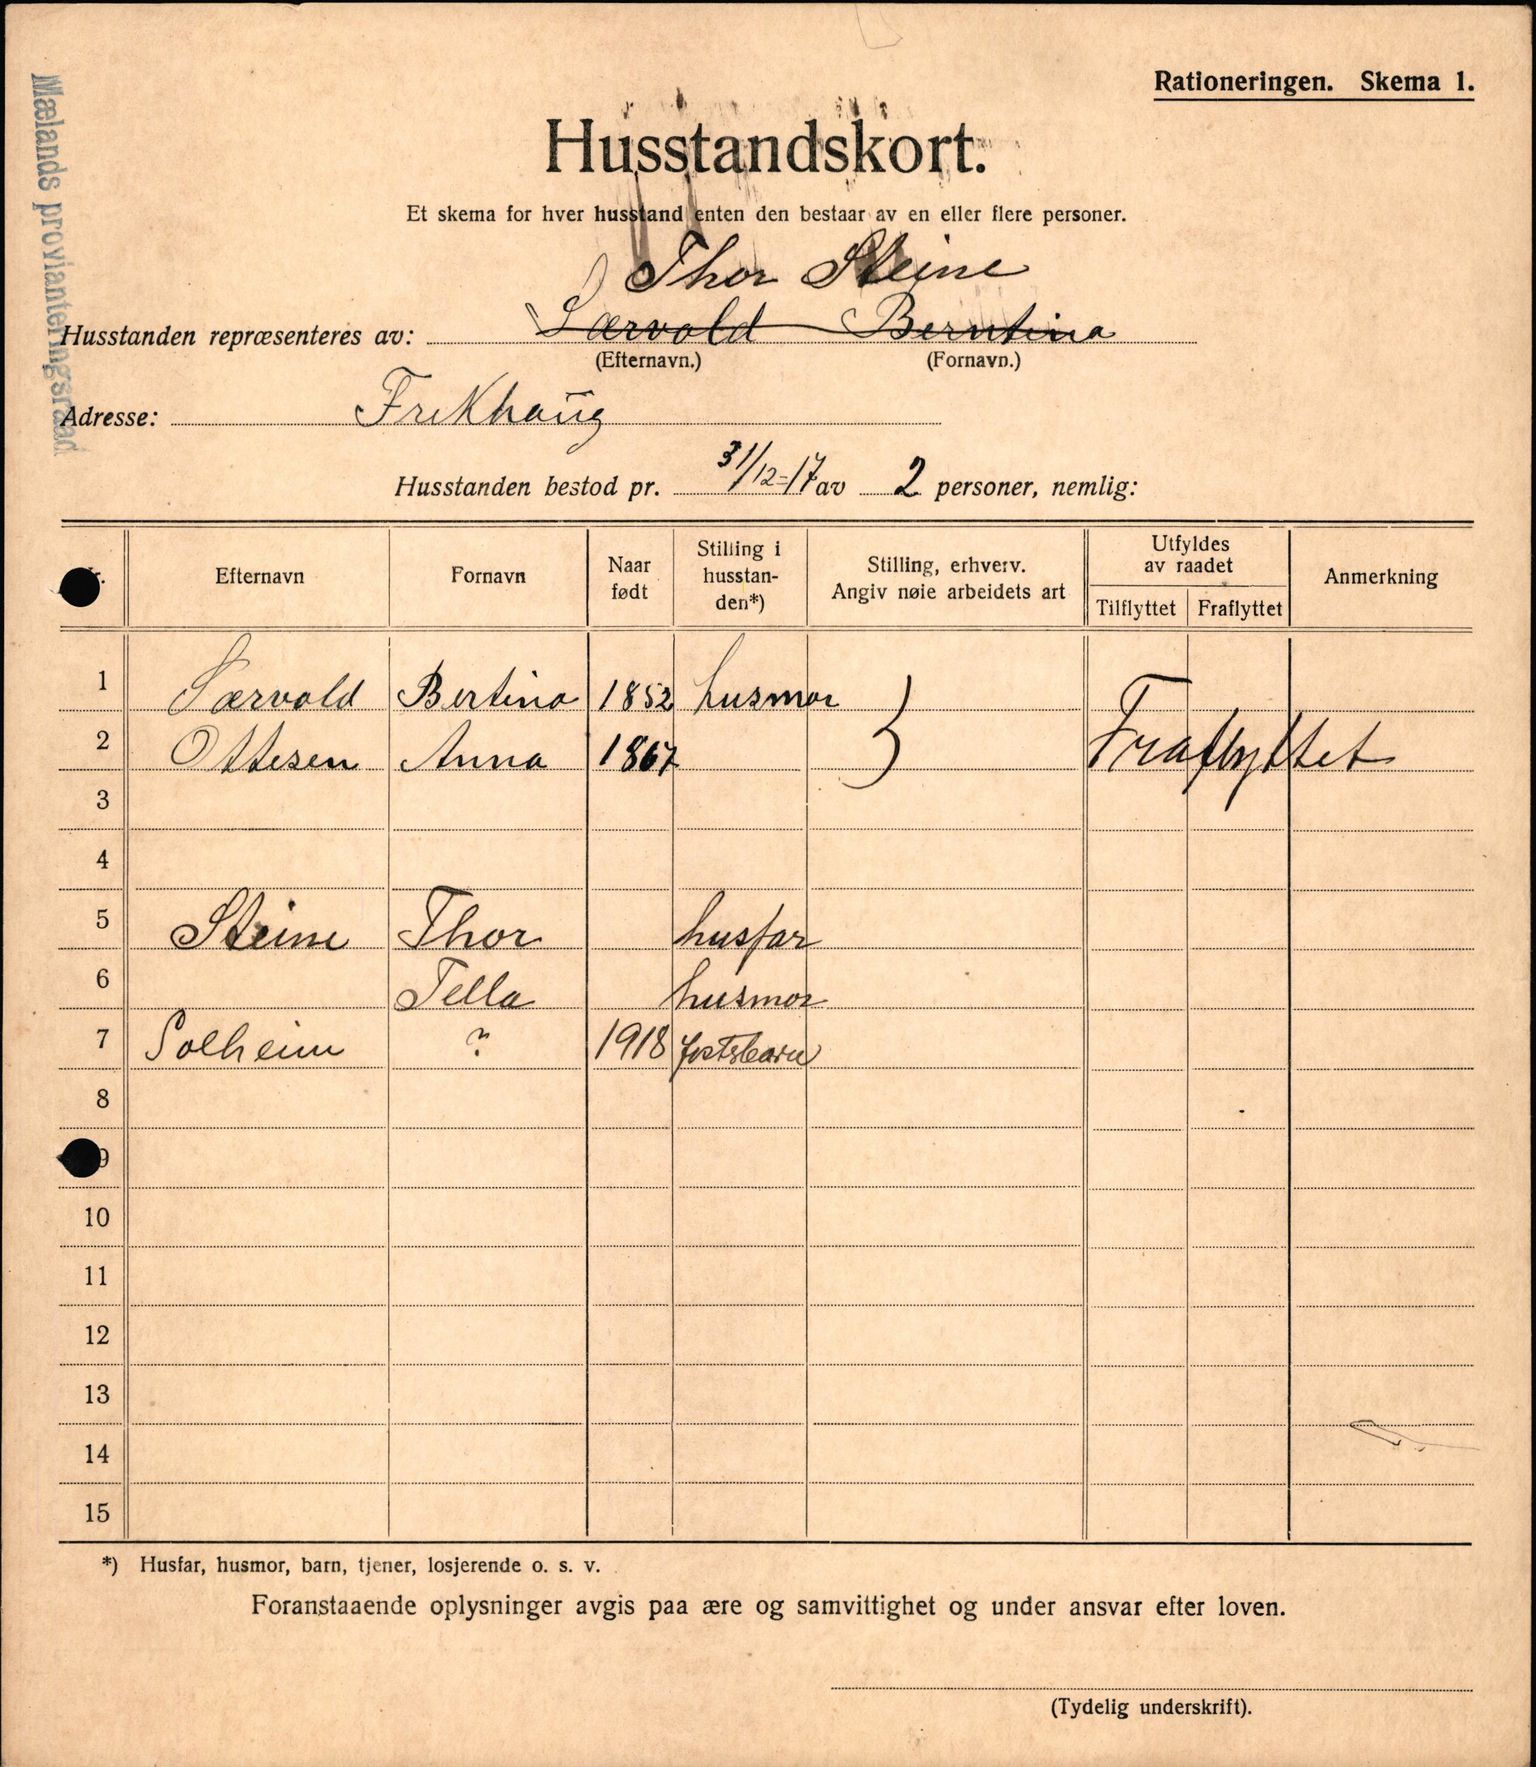 Rationeringen. Skema 1.
Mælands provianteringsraad
Husstandskort.
Et skema for hver husstand enten den bestaar av en eller flere personer.
Thor Steine
Husstanden repræsenteres av: Særvold Berntina
(Efternavn.) (Fornavn.)
Adresse: Frekhaug
Husstanden bestod pr. 31/12-17 av 2 personer, nemlig:
Efternavn Fornavn Naar født Stilling i husstan-den*) Stilling, erhverv. Angiv nøie arbeidets art Utfyldes av raadet Tilflyttet Fraflyttet Anmerkning
1 Særvold Bertina 1852 husmor
2 Ottesen Anna 1867 Fraflyttet
3
4
5 Steine Thor husfar
6 Tella husmor
7 Solheim ? 1918 fostsbarn
8
9
10
11
12
13
14
15
*) Husfar, husmor, barn, tjener, losjerende o. s. v.
Foranstaaende oplysninger avgis paa ære og samvittighet og under ansvar efter loven.
(Tydelig underskrift).